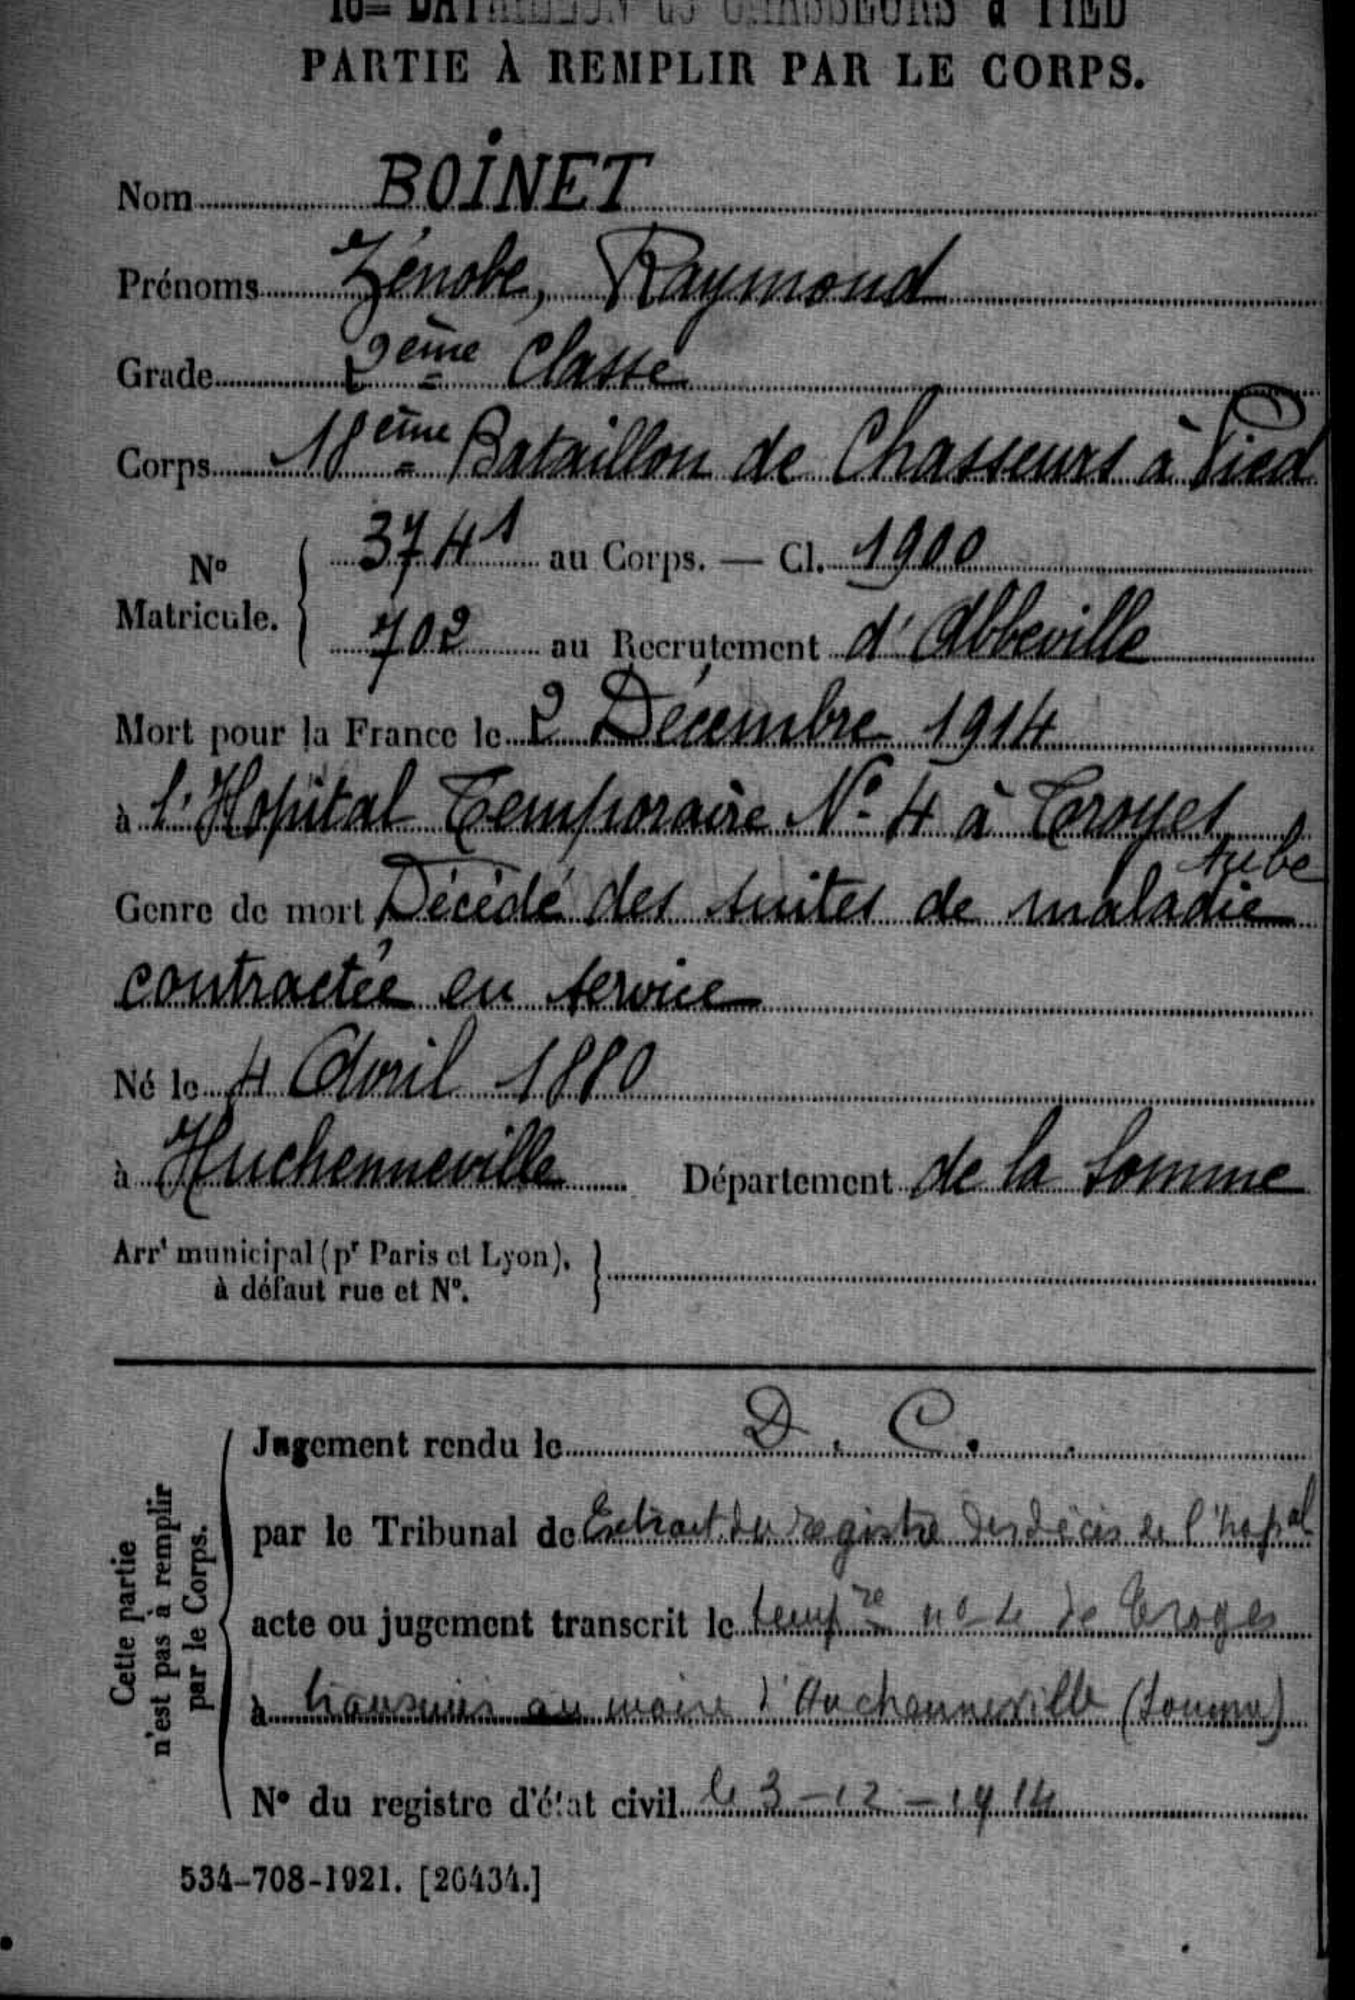 18me BATAILLON de CHASSEURS à PIED
PARTIE À REMPLIR PAR LE CORPS.
Nom BOINET
Prénoms Zénobe, Raymond
Grade 2ème Classe
Corps 18ème Bataillon de Chasseurs à Pied
No Matricule. { 3741 au Corps. — Cl. 1900
702 au Recrutement d'Abbeville
Mort pour la France le 2 Décembre 1914
à l'Hopital Temporaire No 4 à Troyes
Aube
Genre de mort Décédé des suites de maladie
contractée en service
Né le 4 Avril 1880
à Huchenneville Département de la Somme
Arrt municipal (pr Paris et Lyon),
à défaut rue et No.
Cette partie n'est pas à remplir par le Corps.
Jugement rendu le D. C.
par le Tribunal de Extrait du registre des décès de l'hopal
acte ou jugement transcrit le tempre no 4 de Troyes
à transmis au maire d'Huchenneville (Somme)
No du registre d'état civil le 3-12-1914
534-708-1921. [26434.]